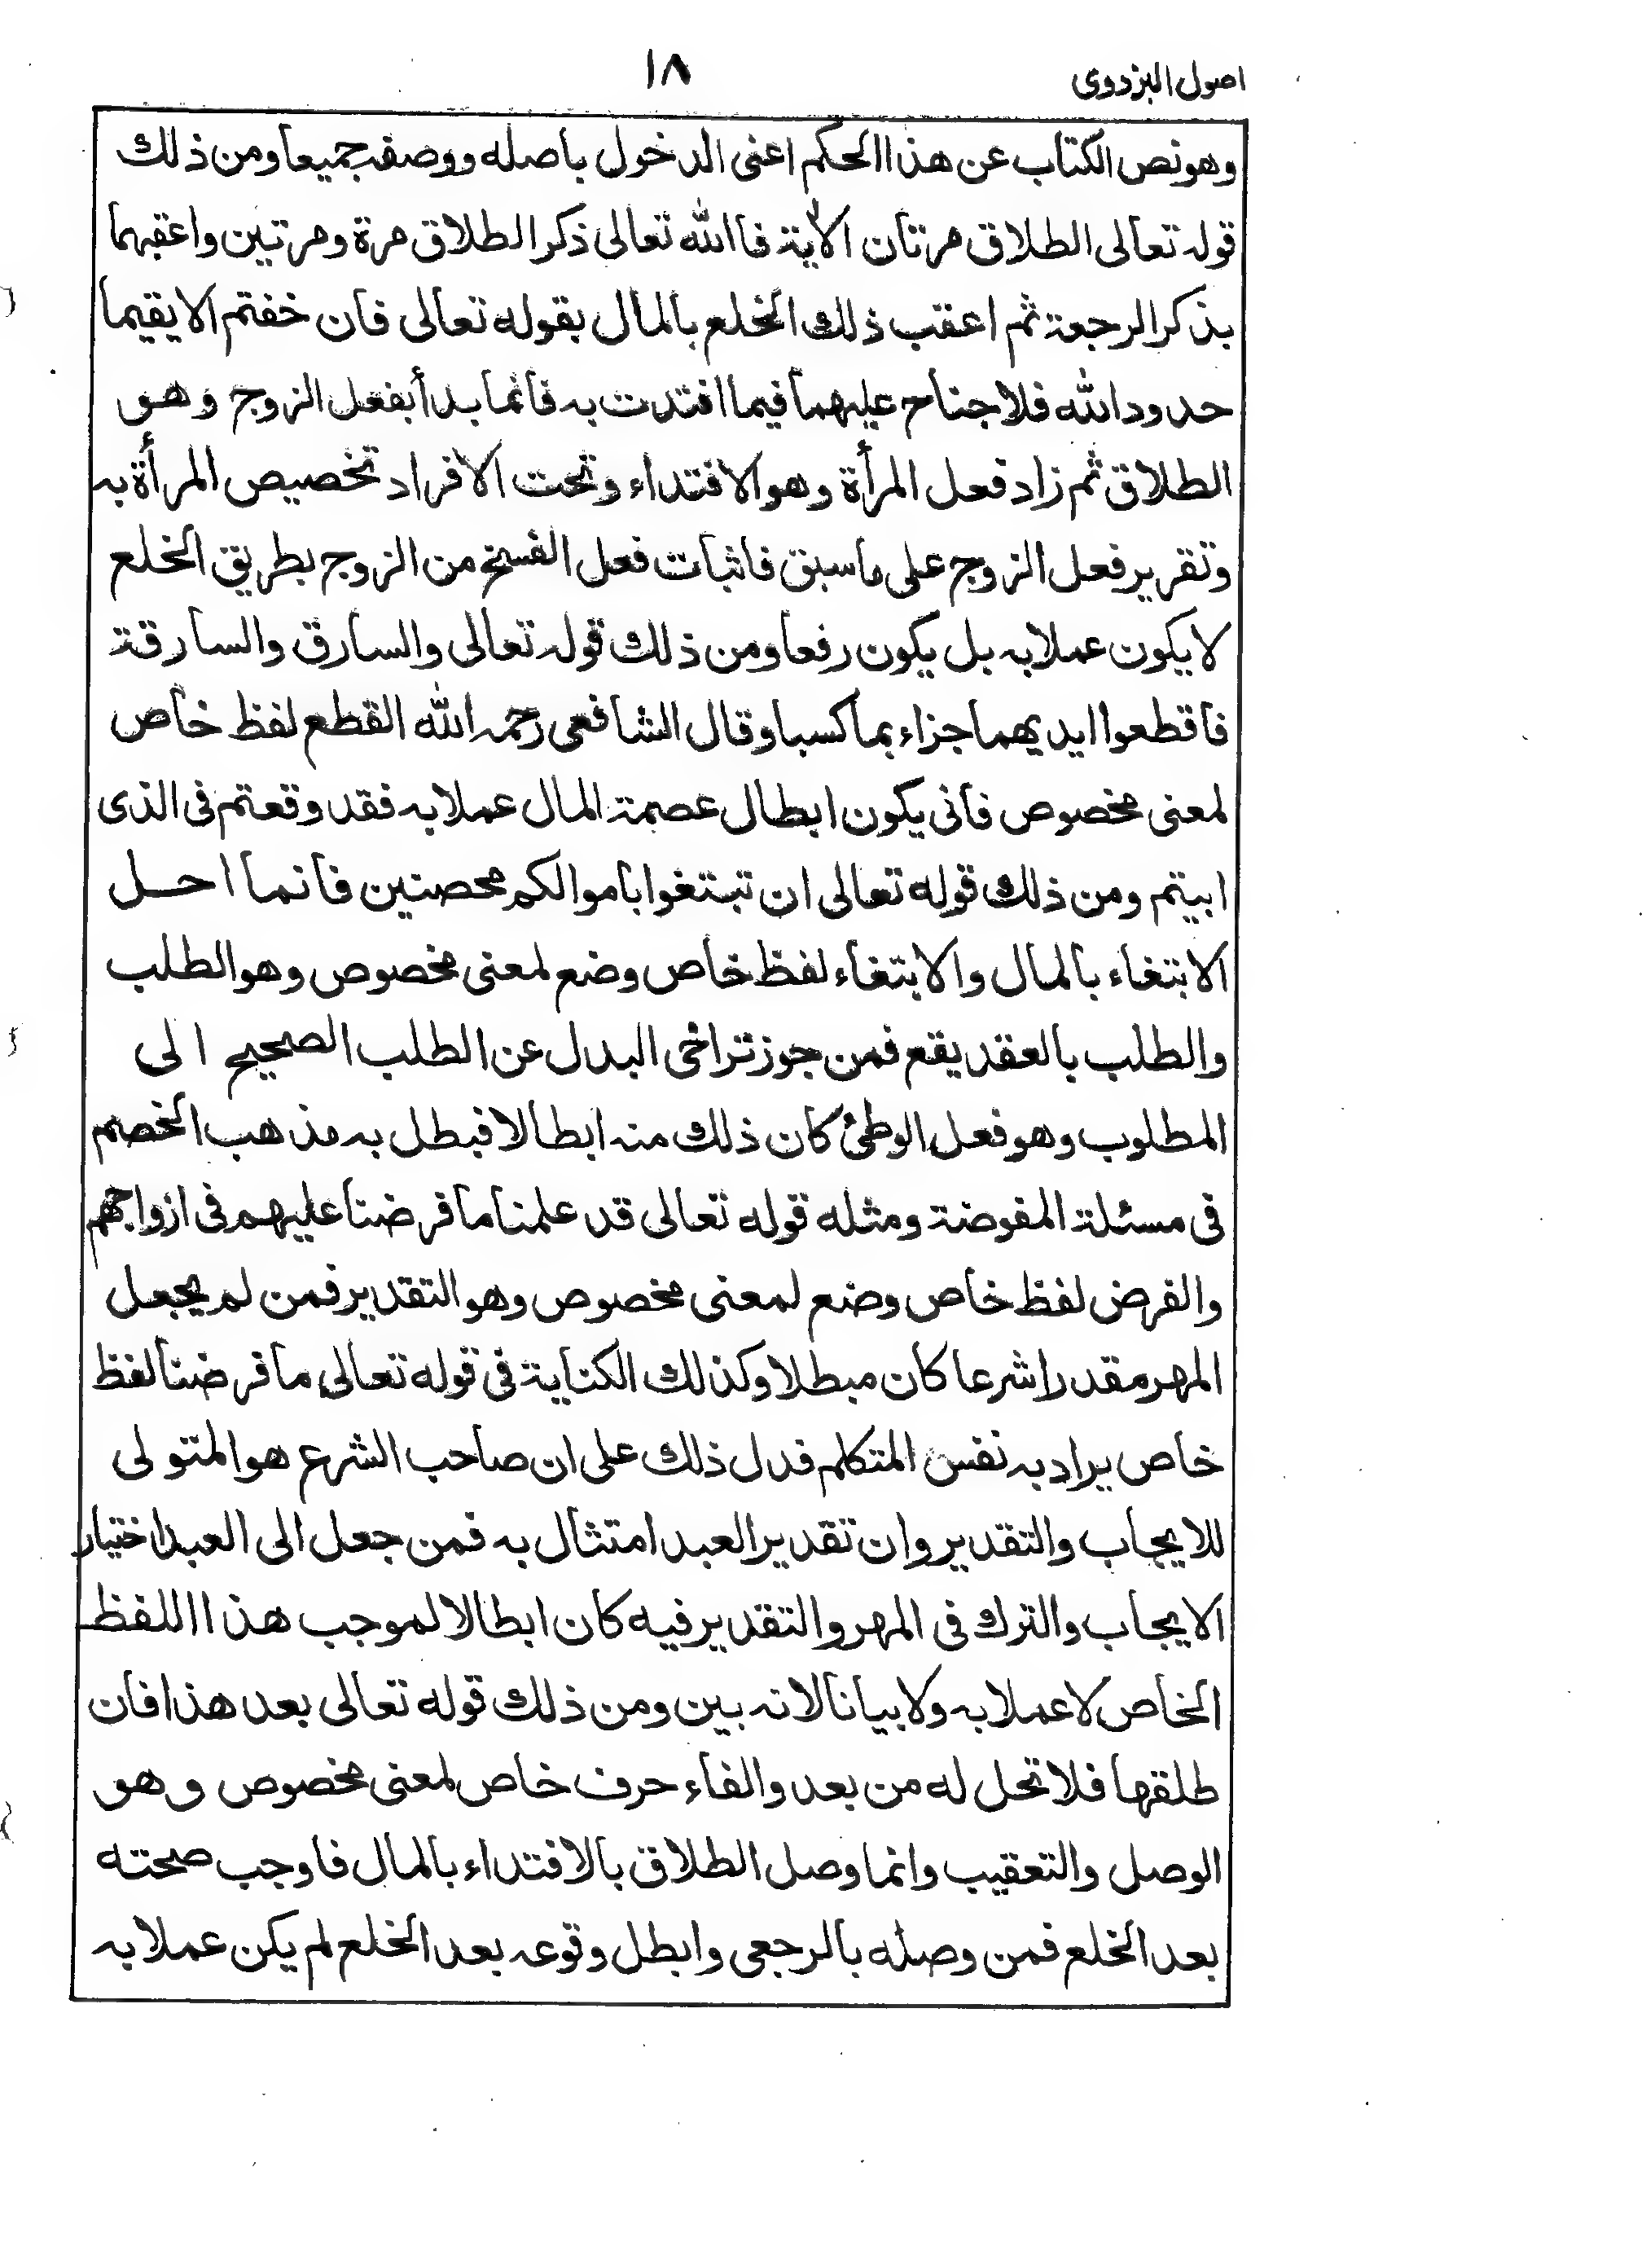 اصول البزدوى
١٨
وهو نص الكتاب عن هذا الحكم اعنى الدخول باصله ووصفه جميعا ومن ذلك
قوله تعالى الطلاق مرتان الآية فالله تعالى ذكر الطلاق مرة ومرتين واعقبهما
بذكر الرجعة ثم اعقب ذلك الخلع بالمال بقوله تعالى فان خفتم الا يقيما
حدود الله فلا جناح عليهما فيما افتدت به فانما بدأ بفعل الزوج وهو
الطلاق ثم زاد فعل المرأة وهو الافتداء وتحت الافراد تخصيص المرأة به
وتقرير فعل الزوج على ما سبق فاثبات فعل الفسخ من الزوج بطريق الخلع
لا يكون عملا به بل يكون رفعا ومن ذلك قوله تعالى والسارق والسارقة
فاقطعوا ايديهما جزاء بما كسبا وقال الشافعى رحمه الله القطع لفظ خاص
لمعنى مخصوص فانى يكون ابطال عصمة المال عملا به فقد وقعتم فى الذى
ابيتم ومن ذلك قوله تعالى ان تبتغوا باموالكم محصنين فانما احل
الابتغاء بالمال والابتغاء لفظ خاص وضع لمعنى مخصوص وهو الطلب
والطلب بالعقد يقع فمن جوز تراخى البدل عن الطلب الصحيح الى
المطلوب وهو فعل الوطئ كان ذلك منه ابطالا فبطل به مذهب الخصم
فى مسئلة المفوضة ومثله قوله تعالى قد علمنا ما فرضنا عليهم فى ازواجهم
والفرض لفظ خاص وضع لمعنى مخصوص وهو التقدير فمن لم يجعل
المهر مقدرا شرعا كان مبطلا وكذلك الكناية فى قوله تعالى ما فرضنا لفظ
خاص يراد به نفس المتكلم فدل ذلك على ان صاحب الشرع هو المتولى
للايجاب والتقدير وان تقدير العبد امتثال به فمن جعل الى العبد اختيار
الايجاب والترك فى المهر والتقدير فيه كان ابطالا لموجب هذا اللفظ
الخاص لا عملا به ولا بيانا لانه بين ومن ذلك قوله تعالى بعد هذا فان
طلقها فلا تحل له من بعد والفاء حرف خاص لمعنى مخصوص وهو
الوصل والتعقيب وانما وصل الطلاق بالافتداء بالمال فاوجب صحته
بعد الخلع فمن وصله بالرجعى وابطل وقوعه بعد الخلع لم يكن عملا به